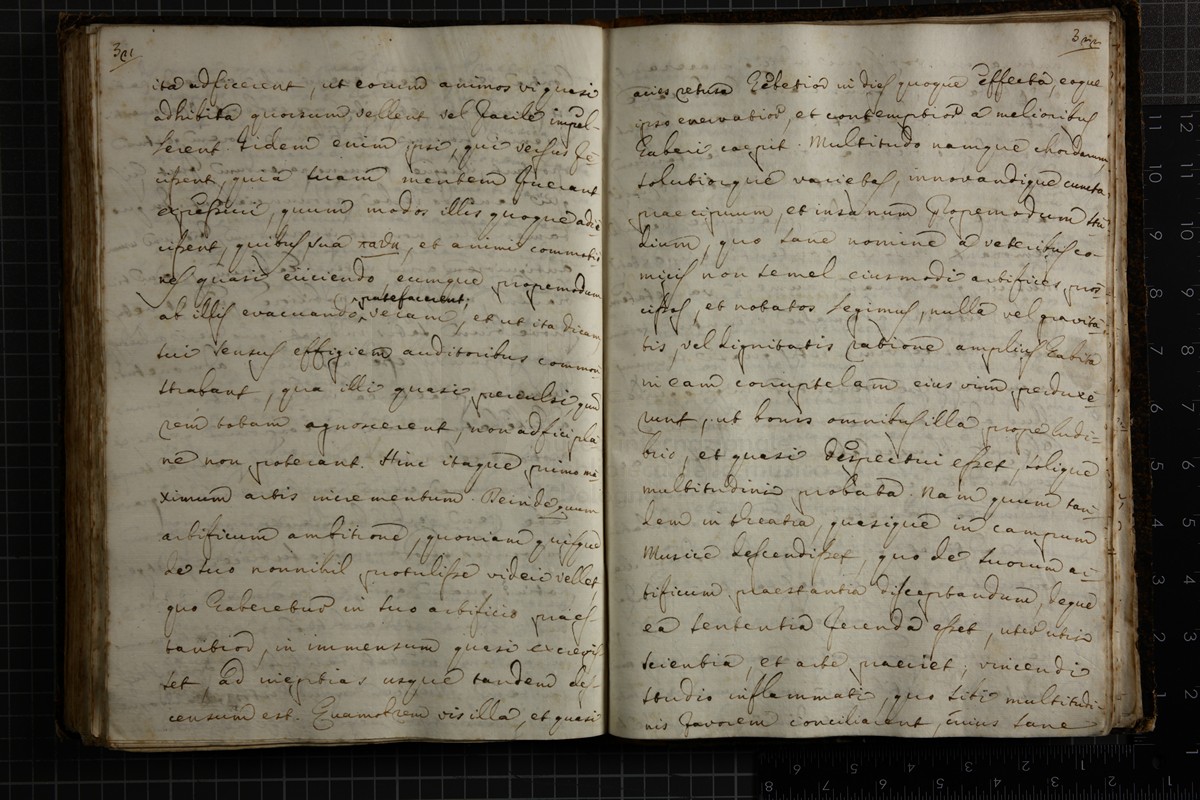 321
ita adficerent, ut eorum animos vi quasi
adhibita quorsum vellent vel facile impel-
lerent. Iidem enim ipsi, qui versus fe-
cissent, quia suam mentem fuerant
expressuri, quum modos illis quoque adie-
cissent, quibus sua πάθη, et animi commotio-
nes quasi eiiciendo, eumque propemodum
ab illis evacuando patefacerent; veram, et ut ita dicam
sui sensus effigiem auditoribus common-
strabant, qua illi quasi perculsi, quum
rem totam agnoscerent, non adfici pla-
ne non poterant. Hinc itaque primo ma-
ximum artis incrementum. Deinde quum
artificum ambitione, quoniam quisque
de suo nonnihil protulisse videri vellet,
quo haberetur in suo artificio praes-
tantior, in immensum quasi crevis-
set, ad ineptias usque tandem de-
censum est. Quamobrem vis illa, et quasi
322
acies retusa hebetior in dies quoque effecta, eoque
ipso enervatior, et contemptior a melioribus
haberi caepit. Multitudo namque chordarum,
solutiorque varietas, innovandique cuncta
praecipuum, et insanum propemodum stu-
dium, quo sane nomine a veteribus co-
micis non semel eiusmodi artifices pros-
cissos, et notatos legimus, nulla vel gravita-
tis, vel dignitatis ratione amplius habita
in eam corruptelam eius vim perduxe-
runt, ut bonis omnibus illa prope ludi-
brio, et quasi despectui esset, solique
multitudini probata. Nam quum tan-
dem in theatra, quasique in campum
Musice descendisset, quo de suorum ar-
tificum praestantia disceptandum, deque
ea sententia ferenda esset, uter utris
scientia, et arte praeiret; vincendi
studio inflammati, quo sibi multitudi-
nis favorem conciliarent, cuius sane